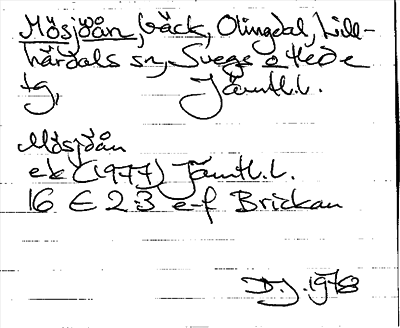 Mösjöån, bäck, Olingdal, Lill-
härdals sn, Svegs o Hede
tg, Jämtl.l.
Mösjöån
ek (1977) Jämtl.l.
16 E 2 3 e-f Brickan
D.J. 1978